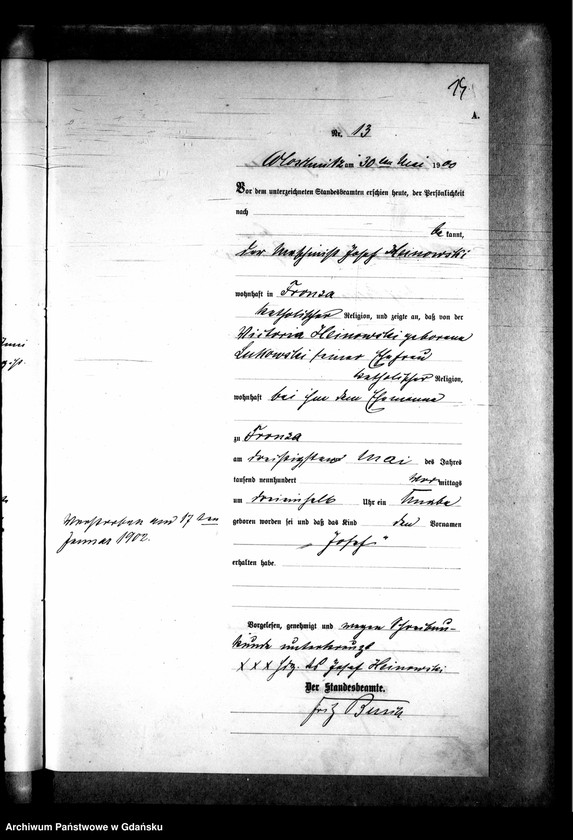 15
A.
Nr. 13
am 30ten Mai 1900
Vor dem unterzeichneten Standesbeamten erschien heute, der Persönlichkeit
nach
be kannt,
der Maschinist Josef Heinowski
wohnhaft in Fronza
katholischer Religion, und zeigte an, daß von der
Victoria Heinowski geborene
Lukowski seiner Ehefrau
katholischer Religion,
wohnhaft bei ihm dem Ehemanne
zu Fronza
am dreißigsten Mai des Jahres
tausend neunhundert Vor mittags
um dreieinhalb Uhr ein Knabe
geboren worden sei und daß das Kind den Vornamen
„Josef“
erhalten habe.
Verstorben am 17ten
Januar 1902.
Vorgelesen, genehmigt und wegen Schreibun-
kunde unterkreuzt
x x x Josef Heinowski
Der Standesbeamte.
Fritz
Archiwum Państwowe w Gdańsku